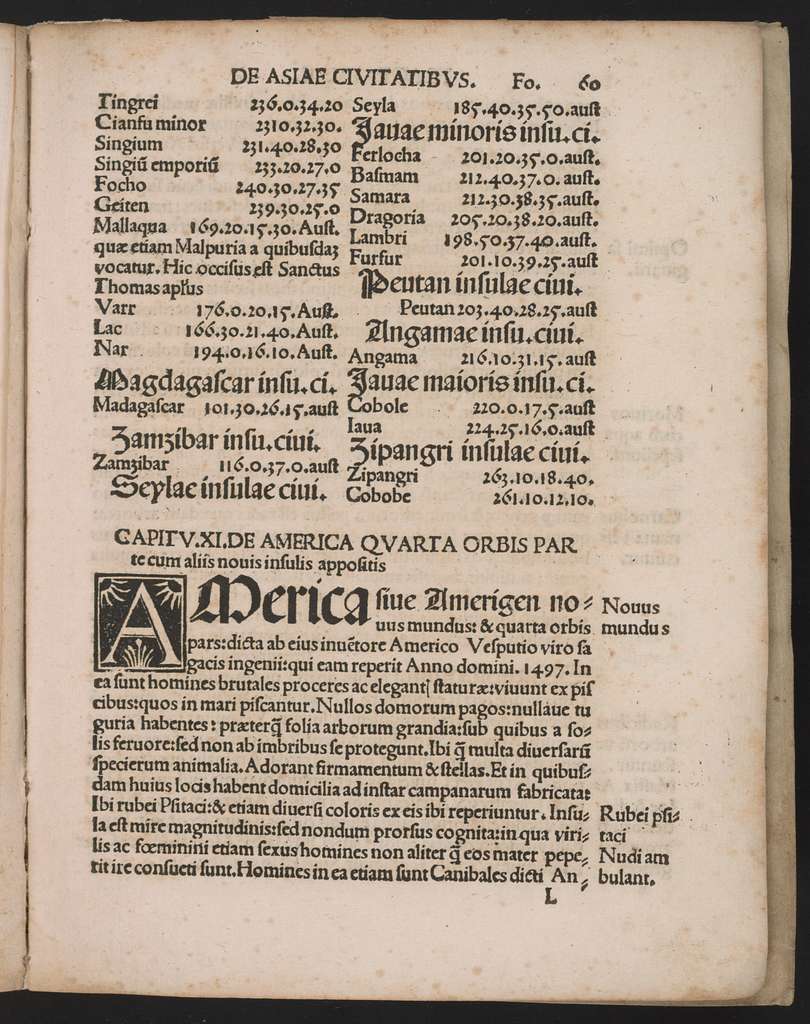 DE ASIAE CIVITATIBVS. Fo. 60
Tingrei 236.0.34.20
Cianfu minor 2310.32.30.
Singium 231.40.28.30
Singiū emporiū 233.20.27.0
Focho 240.30.27.35
Geiten 239.30.25.0
Mallaqua 169.20.15.30. Aust.
quæ etiam Malpuria a quibusdaʒ
vocatur. Hic occisus est Sanctus
Thomas apłus
Varr 176.0.20.15. Aust.
Lac 166.30.21.40. Aust.
Nar 194.0.16.10. Aust.
Magdagascar insu.ci.
Madagascar 101.30.26.15.aust
Zamzibar insu.ciui.
Zamzibar 116.0.37.0.aust
Seylae insulae ciui.
Seyla 185.40.35.50.aust
Jauae minoris insu.ci.
Ferlocha 201.20.35.0.aust.
Basmam 212.40.37.0. aust.
Samara 212.30.38.35.aust.
Dragoria 205.20.38.20.aust.
Lambri 198.50.37.40.aust.
Furfur 201.10.39.25.aust
Peutan insulae ciui.
Peutan 203.40.28.25.aust
Angamae insu.ciui.
Angama 216.10.31.15. aust
Jauae maioris insu.ci.
Cobole 220.0.17.5.aust
Iaua 224.25.16.0.aust
Zipangri insulae ciui.
Zipangri 263.10.18.40.
Cobobe 261.10.12.10.
CAPITV.XI.DE AMERICA QVARTA ORBIS PAR
te cum aliis nouis insulis appositis
AMerica siue Amerigen no⸗
uus mundus: & quarta orbis
pars: dicta ab eius inuētore Americo Vesputio viro sa
gacis ingenii: qui eam reperit Anno domini. 1497. In
ea sunt homines brutales proceres ac elegantį staturæ: viuunt ex pis
cibus: quos in mari piscantur. Nullos domorum pagos: nullaue tu
guria habentes: præterq̃ folia arborum grandia: sub quibus a so⸗
lis feruore: sed non ab imbribus se protegunt. Ibi q̃ multa diuersarū
specierum animalia. Adorant firmamentum & stellas. Et in quibus⸗
dam huius locis habent domicilia ad instar campanarum fabricata:
Ibi rubei Psitaci: & etiam diuersi coloris ex eis ibi reperiuntur. Insu⸗
la est mire magnitudinis: sed nondum prorsus cognita: in qua viri⸗
lis ac fœminini etiam sexus homines non aliter q̃ eos mater pepe⸗
rit ire consueti sunt. Homines in ea etiam sunt Canibales dicti An⸗
L
Nouus
mundus
Rubei psi⸗
taci
Nudi am
bulant.